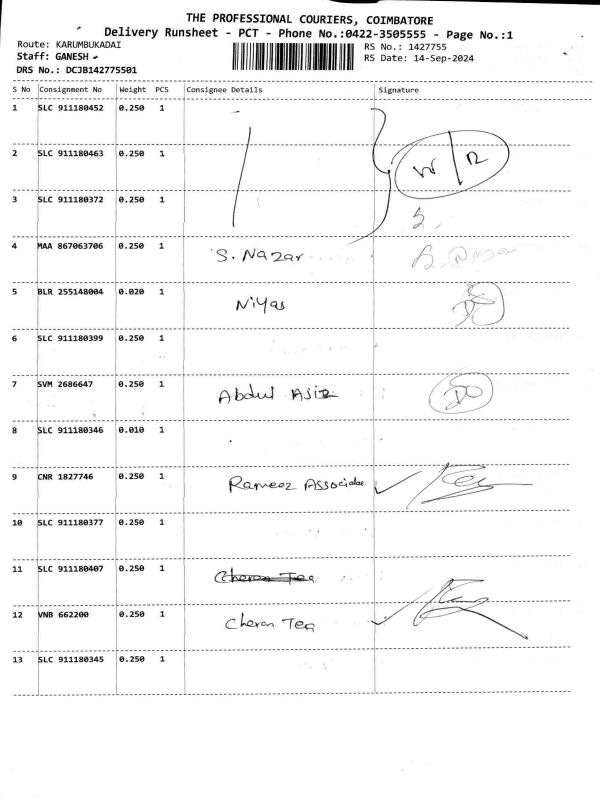 THE PROFESSIONAL COURIERS, COIMBATORE
Delivery Runsheet - PCT - Phone No.:0422-3505555 - Page No.:1
Route: KARUMBUKADAI
RS No.: 1427755
Staff: GANESH
RS Date: 14-Sep-2024
DRS No.: DCJB142775501
S No Consignment No Weight PCS Consignee Details Signature
1 SLC 911180452 0.250 1
2 SLC 911180463 0.250 1
3 SLC 911180372 0.250 1
4 MAA 867063706 0.250 1 S. Nazar
5 BLR 255148004 0.020 1 Niyas
6 SLC 911180399 0.250 1
7 SVM 2686647 0.250 1 Abdul Asiz
8 SLC 911180346 0.010 1
9 CNR 1827746 0.250 1 Rameez Associates
10 SLC 911180377 0.250 1
11 SLC 911180407 0.250 1 Cheran Tea
12 VNB 662200 0.250 1 Cheran Tea
13 SLC 911180345 0.250 1